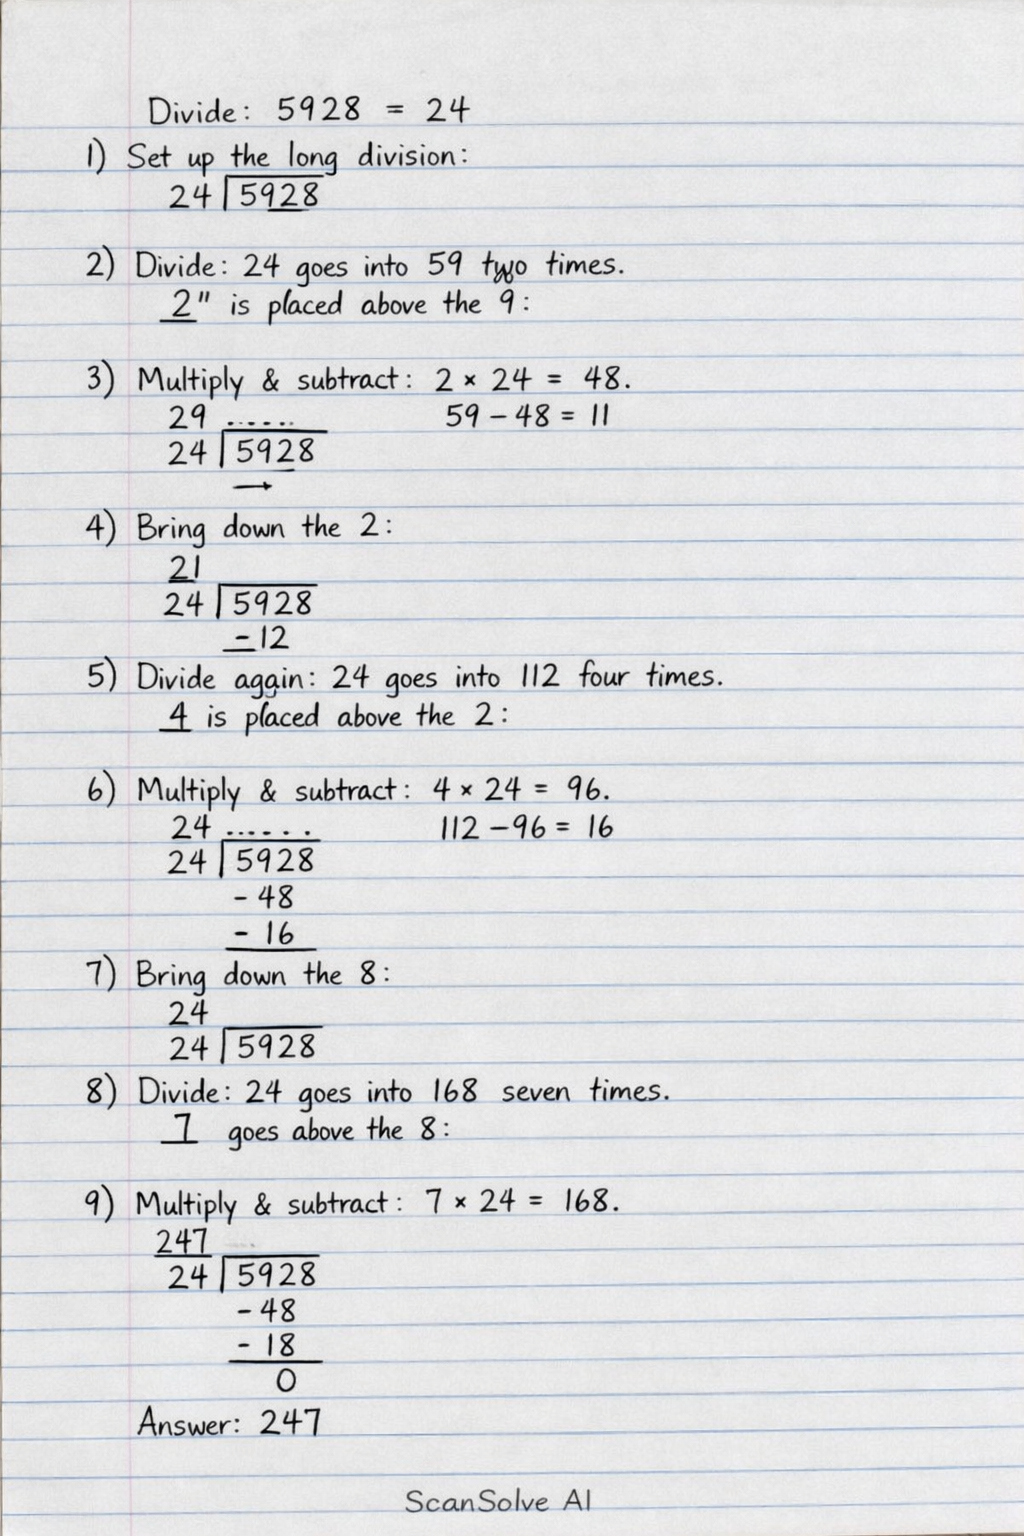 Divide: 5928 = 24
1) Set up the long division:
24 5928
2) Divide: 24 goes into 59 two times.
2" is placed above the 9:
3) Multiply & subtract: 2 × 24 = 48.
29 ...... 59 - 48 = 11
24 5928
4) Bring down the 2:
21
24 5928
-12
5) Divide again: 24 goes into 112 four times.
4 is placed above the 2:
6) Multiply & subtract: 4 × 24 = 96.
24 ...... 112 - 96 = 16
24 5928
- 48
- 16
7) Bring down the 8:
24
24 5928
8) Divide: 24 goes into 168 seven times.
7 goes above the 8:
9) Multiply & subtract: 7 × 24 = 168.
247
24 5928
- 48
- 18
0
Answer: 247
ScanSolve AI